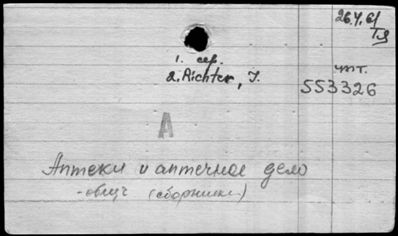 26.X.61
1. сер.
2. Richter, J.
чит.
553326
А
Аптеки и аптечное дело
- общ (сборники)